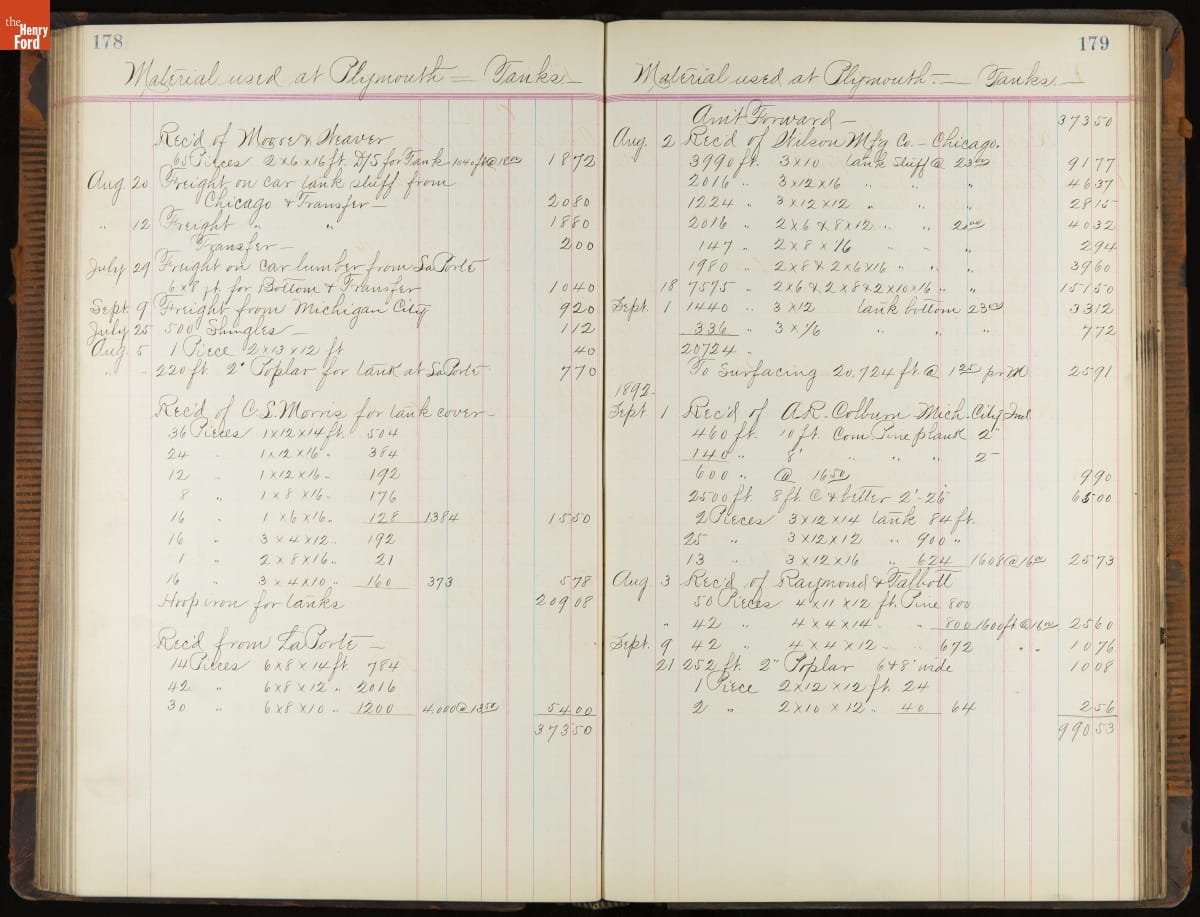 the
Henry
Ford
178
Material used at Plymouth — Tanks —
Rec'd of Moore & Weaver
65 Pieces 2x6x16 ft. D/S for Tank 1040 ft @ 18 00 1872
Aug. 20 Freight on car tank stuff from
Chicago & Transfer — 2080
" 12 Freight " " 1880
Transfer — 200
July 29 Freight on car lumber from LaPorte
6x8 ft. for Bottom & Transfer 1040
Sept. 9 Freight from Michigan City 920
July 25 500 Shingles — 112
Aug. 5 1 Piece 2x13x12 ft 40
" " 220 ft 2" Poplar for tank at LaPorte 770
Rec'd of C.S. Morris for tank cover —
36 Pieces 1x12x14 ft. 504
24 " 1x12x16 " 384
12 " 1x12x16 " 192
8 " 1x8x16 " 176
16 " 1x6x16 " 128 1384 1550
16 " 3x4x12 " 192
1 " 2x8x16 " 21
16 " 3x4x10 " 160 373 578
Hoop iron for tanks 20908
Rec'd from LaPorte —
14 Pieces 6x8x14 ft 784
42 " 6x8x12 " 2016
30 " 6x8x10 " 1200 4,000 @ 13 50 5400
37350
179
Material used at Plymouth — Tanks —
Am't Forward — 37350
Aug. 2 Rec'd of Wilson M'f'g Co. — Chicago.
3990 ft. 3x10 tank stuff @ 23 00 9177
2016 " 3x12x16 " " " 4637
1224 " 3x12x12 " " " 2815
2016 " 2x6 & 8x12 " " 20 00 4032
147 " 2x8x16 " " " 294
1980 " 2x8 & 2x6x16 " " " 3960
18 7575 " 2x6 & 2x8 & 2x10x16 " " 15150
Sept. 1 1440 " 3x12 tank bottom 23 00 3312
336 " 3x16 " " " 772
20724 "
To Surfacing 20,724 ft @ 1 25 pr M 2591
1892
Sept. 1 Rec'd of A.R. Colburn Mich. City Ind
460 ft. 10 ft. Com. Pine plank 2"
140 " 8' " " " 2"
600 " @ 16 50 990
2500 ft. 8 ft. C & better 2"-26 6500
2 Pieces 3x12x14 tank 84 ft.
25 " 3x12x12 " 900 "
13 " 3x12x16 " 624 1608 @ 16 00 2573
Aug. 3 Rec'd of Raymond & Talbott
50 Pieces 4x11x12 ft. Pine 800
" 42 " 4x4x14 " " 800 1600 ft @ 16 00 2560
Sept. 9 42 " 4x4x12 " 672 " " 1076
21 252 ft. 2" Poplar 6 & 8" wide 1008
1 Piece 2x12x12 ft. 24
2 " 2x10x12 " 40 64 256
99053